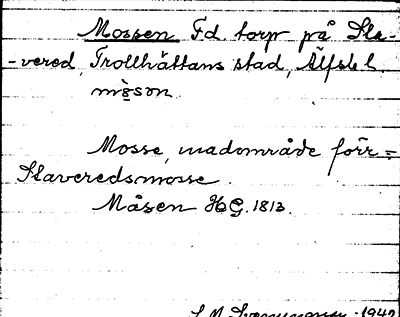 Mossen Fd. torp på Sla-
-vered, Trollhättans stad, Älfsb l.
mòson
Mosse, madområde förr =
Slaveredsmosse.
Måsen HG. 1813.
1942